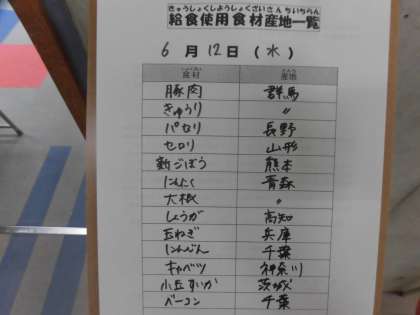 きゅうしょくしようしょくざいさんちいちらん
給食使用食材産地一覧
6月12日(水)
食材 産地
豚肉 群馬
きゅうり 〃
パセリ 長野
セロリ 山形
新ごぼう 熊本
にんにく 青森
大根 〃
しょうが 高知
玉ねぎ 兵庫
にんじん 千葉
キャベツ 神奈川
小玉すいか 茨城
ベーコン 千葉